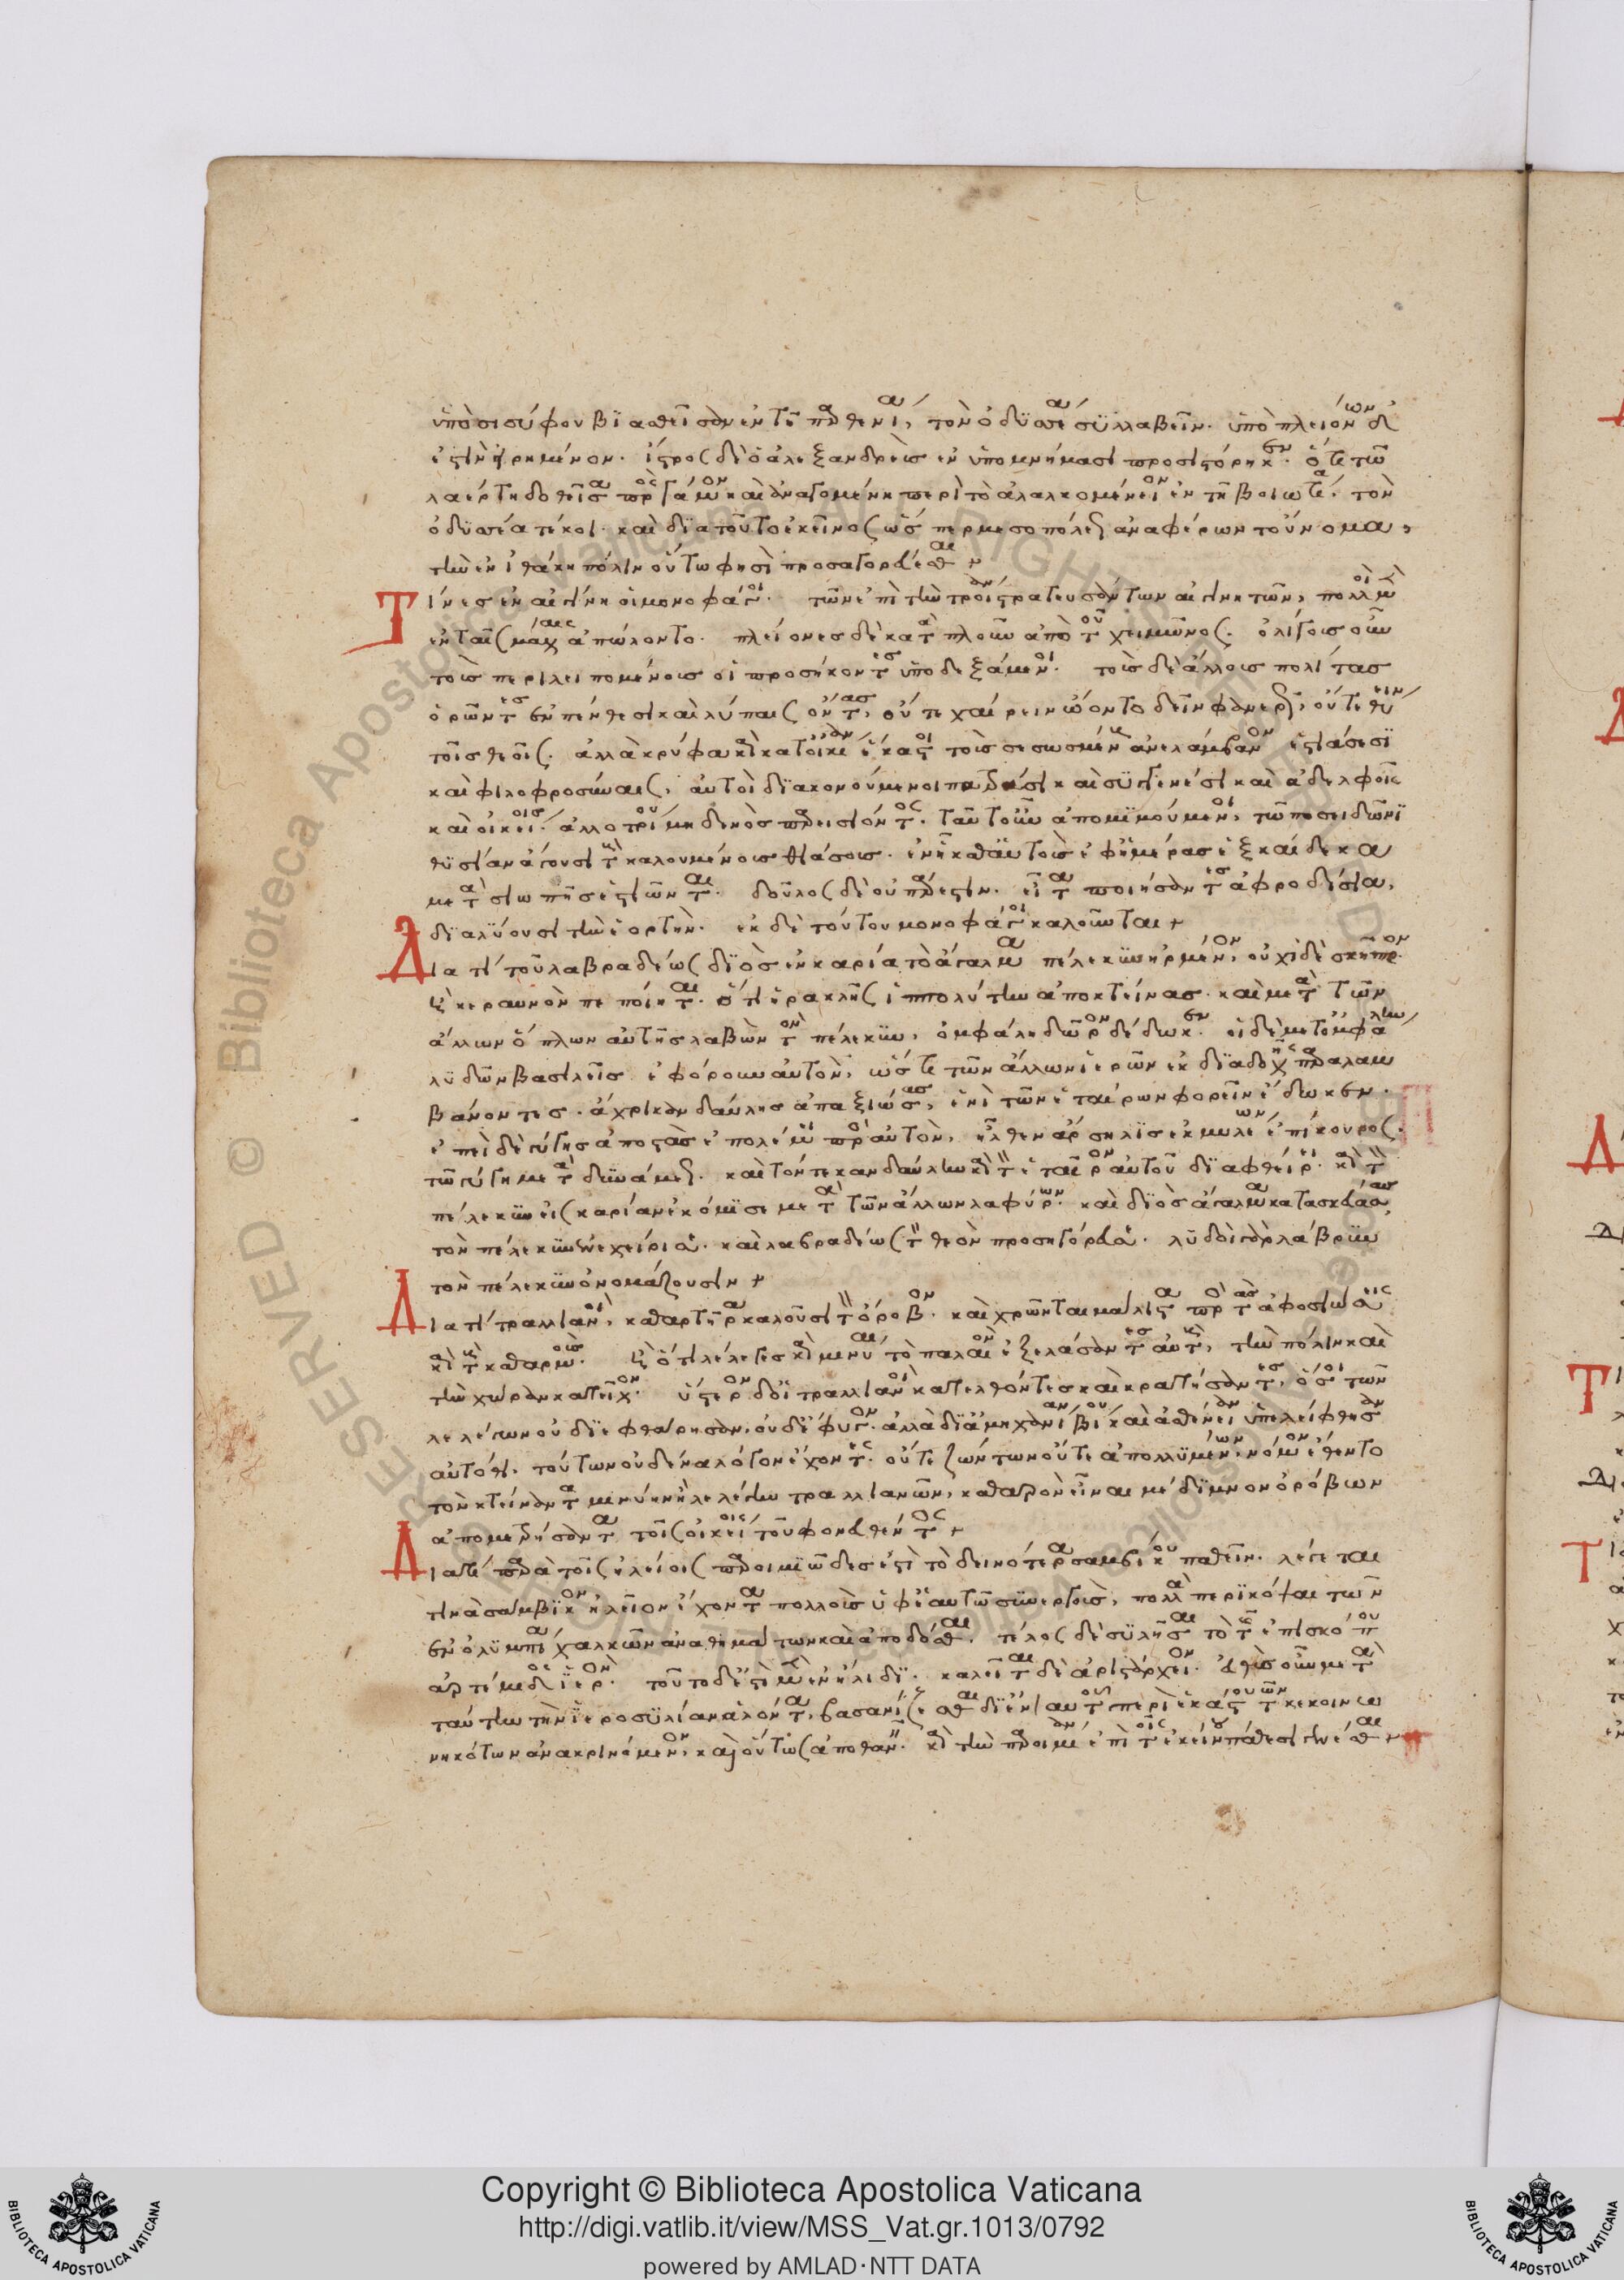 ὑπὸ σισύφου βιασθεῖσαν ἐν τῆ παρθενία, τὸν ὀδυσσέα συλλαβεῖν. ὑπὸ πλειόνων δὲ
ἐστὶν εἰρημένον. ἴστρος δὲ ὁ ἀλεξανδρεὺς ἐν ὑπομνήμασι προσιστόρηκεν. ὅτε τῶ
λαέρτη δοθεῖσα πρὸς γάμον καὶ ἀναγομένη περὶ τὸ ἀλαλκομένειον ἐν τῆ βοιωτία. τὸν
ὀδυσσέα τέκοι. καὶ διὰ τοῦτο ἐκεῖνος ὥσπερ μεσοπόλεως ἀναφέρων τοὔνομα,
τὴν ἐν ἰθάκη πόλιν οὕτω φησὶ προσαγορεύεσθαι
Τίνες ἐν αἰγίνη οἱ μονοφάγοι. τῶν ἐπὶ τὴν τροίαν στρατευσάντων αἰγινητῶν, πολλοὶ μὲν
ἐν ταῖς μάχαις ἀπώλοντο. πλείονες δὲ κατὰ πλοῦν ἀπὸ τοῦ χειμῶνος. ὀλίγοις οὖν
τοὺς περιλειπομένους οἱ προσήκοντες ὑποδεξάμενοι. τοὺς δὲ ἄλλους πολίτας
ὁρῶντες ἐν πένθεσι καὶ λύπαις ὄντας, οὔτε χαίρειν ὤοντο δεῖν φανερῶς, οὔτε θύειν
τοῖς θεοῖς. ἀλλὰ κρύφα καὶ κατ' οἰκίαν ἕκαστοι τοὺς σεσωσμένους ἀνελάμβανον ἑστιάσεσι
καὶ φιλοφροσύναις, αὐτοὶ διακονούμενοι πατράσι καὶ συγγενέσι καὶ ἀδελφοῖς
καὶ οἰκείοις. ἀλλοτρίου μηδενὸς παρεισιόντος. ταῦτ' οὖν ἀπομιμούμενοι, τῶ ποσειδῶνι
θυσίαν ἄγουσι τοὺς καλουμένους θιάσους. ἐν ἧ καθ' αὑτοὺς ἐφ' ἡμέρας ἑξκαίδεκα
μετὰ σιωπῆς ἑστιῶνται. δοῦλος δὲ οὐ πάρεστιν. εἶτα ποιήσαντες ἀφροδίσια,
διαλύουσι τὴν ἑορτήν. ἐκ δὲ τούτου μονοφάγοι καλοῦνται
Διὰ τί τοῦ λαβραδέως διὸς ἐν καρία τὸ ἄγαλμα πέλεκυν ἠρμένον, οὐχὶ δὲ σκῆπτρον
ἢ κεραυνὸν πεποίηται. ὅτι ἡρακλῆς ἱππολύτην ἀποκτείνας. καὶ μετὰ τῶν
ἄλλων ὅπλων αὐτῆς λαβὼν τὸν πέλεκυν, ὀμφάλη δῶρον δέδωκεν. οἱ δὲ μετ' ὀμφάλην
λυδῶν βασιλεῖς ἐφόρουν αὐτόν, ὥς τε τῶν ἄλλων ἱερῶν ἐκ διαδοχῆς παραλαμ
βάνοντες. ἄχρι κανδαύλης ἀπαξιώσας, ἑνὶ τῶν ἑταίρων φορεῖν ἔδωκεν.
ἐπεὶ δὲ γύγης ἀποστὰς ἐπολέμει πρὸς αὐτὸν, ἦλθεν ἄρσηλις ἐκ μυλέων ἐπίκουρος.
τῶ γύγη μετὰ δυνάμεως. καὶ τόν τε κανδαύλην καὶ τὸν ἑταῖρον αὐτοῦ διαφθείρει. καὶ τὸν
πέλεκυν εἰς καρίαν ἐκόμισε μετὰ τῶν ἄλλων λαφύρων. καὶ διὸς ἄγαλμα κατασκευάσας
τὸν πέλεκυν ἐνεχείρισε. καὶ λαβραδέως τὸν θεὸν προσηγόρευσε. λυδοὶ γὰρ λάβρυν
τὸν πέλεκυν ὀνομάζουσιν
Διὰ τί τραλλιανοὶ, καθαρτῆρα καλοῦσι τὸν ὄροβον. καὶ χρῶνται μάλιστα πρὸς τὰς ἀφοσιώσεις
καὶ τοὺς καθαρμούς. ἢ ὅτι λέλεγες καὶ μινύαι τὸ παλαιὸν ἐξελάσαντες αὐτοὺς, τὴν πόλιν καὶ
τὴν χώραν κατεῖχον. ὕστερον δ' οἱ τραλλιανοὶ κατελθόντες καὶ κρατήσαντες, ὅσοι τῶν
λελέγων οὐ διεφθάρησαν, οὐδ' ἔφυγον. ἀλλὰ δι' ἀμηχανίαν βίου καὶ ἀσθένειαν ὑπελείφθησαν
αὐτόθι, τούτων οὐδένα λόγον ἔχοντες. οὔτε ζώντων οὔτε ἀπολλυμένων, νόμον ἔθεντο
τὸν κτείναντα μινύην ἢ λελέγην τραλλιανῶν, καθαρὸν εἶναι μέδιμνον ὀρόβων
ἀπομετρήσαντα τοῖς οἰκείοις τοῦ φονευθέντος
Διὰ τί παρὰ τοῖς ἠλείοις παροιμιῶδές ἐστι τὸ δεινότερα σαμβίκου παθεῖν. λέγεται
τινὰ σάμβικον ἠλεῖον ἔχοντα πολλοὺς ὑφ' ἑαυτῶ συνεργοὺς, πολλὰ περικόψαι τῶν
ἐν ὀλυμπία χαλκῶν ἀναθημάτων καὶ ἀποδόσθαι. τέλος δὲ συλῆσαι τὸ τῆς ἐπισκόπου
ἀρτέμιδος ἱερόν. τοῦτο δ' ἔστι μὲν ἐν ἤλιδι. καλεῖται δὲ ἀριστάρχειον. εὐθὺς οὖν μετὰ
ταύτην τὴν ἱεροσυλίαν ἁλόντα, βασανίζεσθαι δι' ἐνιαυτοῦ περὶ ἑκάστου τῶν κεκοινω
νηκότων ἀνακρινόμενον, καὶ οὕτως ἀποθανεῖν. καὶ τὴν παροιμίαν ἐπὶ τοῖς ἐκείνου πάθεσι γενέσθαι
RESERVED © Biblioteca Apostolica Vaticana
Copyright © Biblioteca Apostolica Vaticana
http://digi.vatlib.it/view/MSS_Vat.gr.1013/0792
powered by AMLAD·NTT DATA
BIBLIOTECA APOSTOLICA VATICANA
BIBLIOTECA APOSTOLICA VATICANA